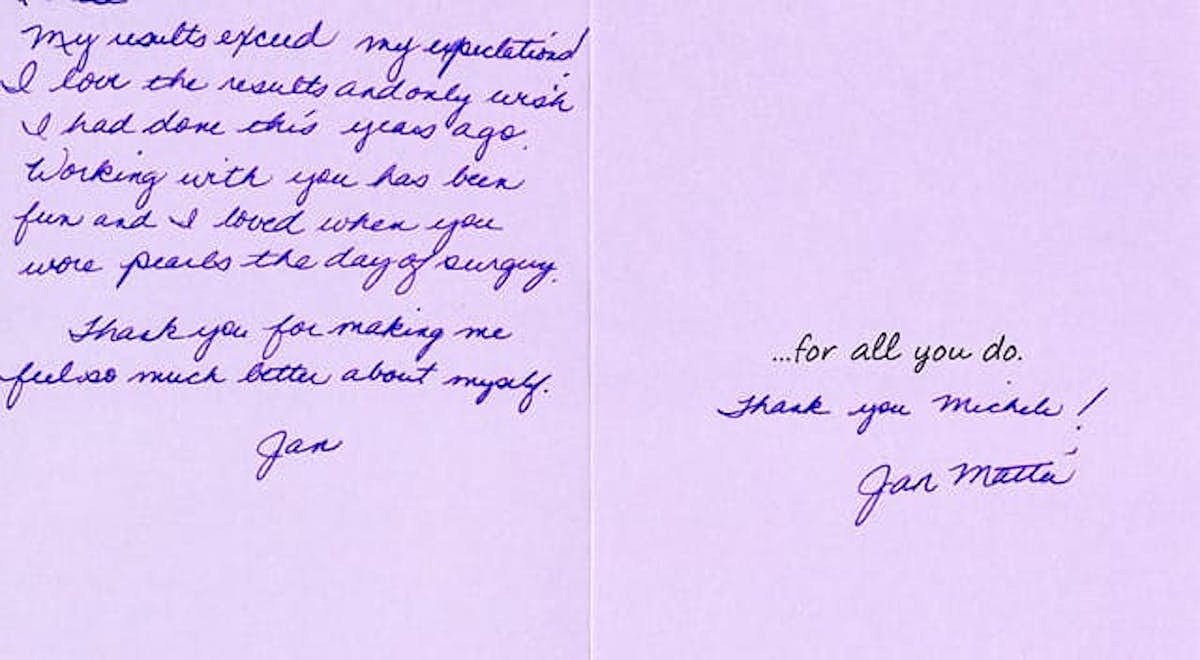 My results exceed my expectations!
I love the results and only wish
I had done this years ago.
Working with you has been
fun and I loved when you
wore pearls the day of surgery.
Thank you for making me
feel so much better about myself.
Jan
...for all you do.
Thank you Michele!
Jan